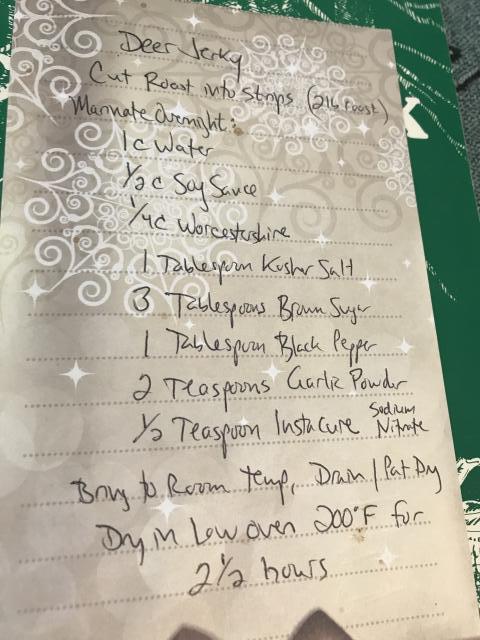 Deer Jerky
Cut Roast into Strips (2lb roast)
Marinate Overnight:
1c Water
1/2 c Soy Sauce
1/4c Worcestershire
1 Tablespoon Kosher Salt
3 Tablespoons Brown Sugar
1 Tablespoon Black Pepper
2 Teaspoons Garlic Powder
1/2 Teaspoon Instacure Sodium Nitrate
Bring to Room temp, Drain/Pat Dry
Dry in Low oven 200°F for
2 1/2 hours